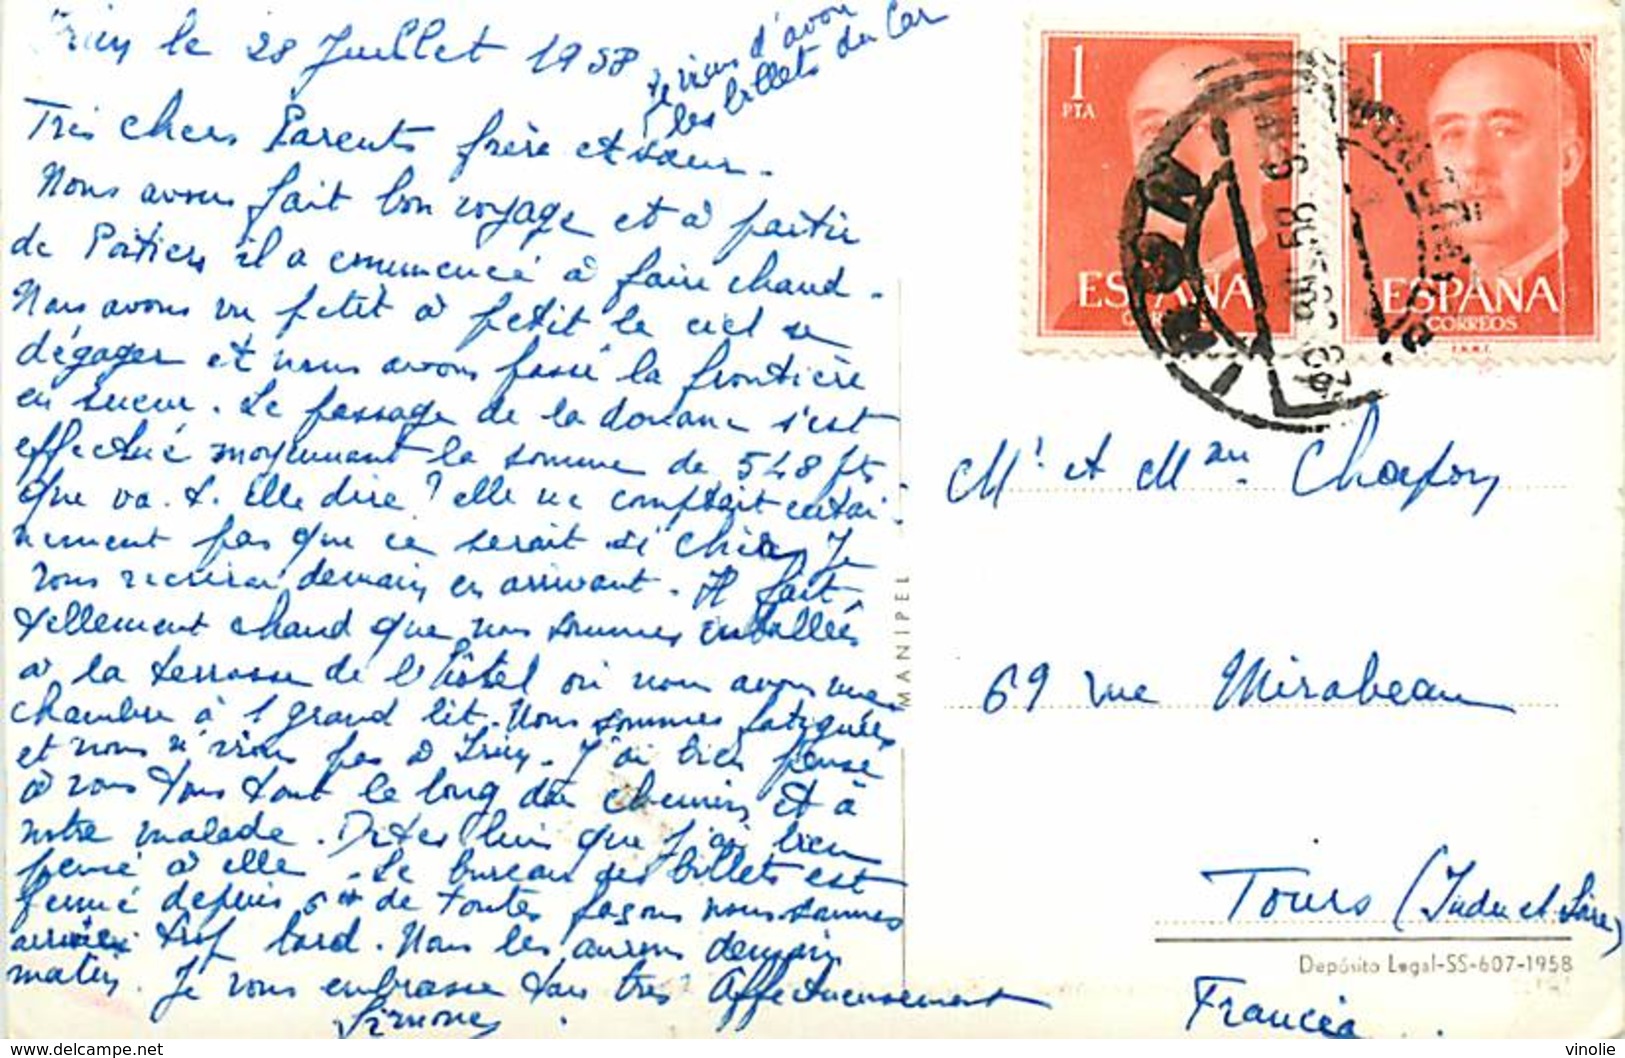 Irun le 28 Juillet 1958
Je viens d'avoir
les billets du Car
Très chers Parents frère et sœur.
Nous avons fait bon voyage et à partir
de Poitiers il a commencé à faire chaud.
Nous avons vu petit à petit le ciel se
dégager et nous avons passé la frontière
en sueur. Le passage de la douane s'est
effectué moyennant la somme de 548 pts
que va-t-elle dire ? elle ne comptait certai-
nement pas que ce serait si cher, Je
vous récrirai demain en arrivant. Il fait
tellement chaud que nous sommes installées
à la terrasse de l'hôtel où nous avons une
chambre à 1 grand lit. Nous sommes fatiguées
et nous n'irons pas à Irun. J'ai bien pensé
à vous tous tout le long du chemin et à
notre malade. Dites lui que j'ai bien
pensé à elle. Le bureau des billets est
fermé depuis 6 de toutes façons nous sommes
arrivées trop tard. Nous les aurons demain
matin. Je vous embrasse tous très Affectueusement
Simone.
1
PTA
ESPAÑA
CORREOS
1
ESPAÑA
CORREOS
F.N.M.T.
MANIPEL
Mr et Mme Chafon
69 rue Mirabeau
Tours (Indre et Loire)
Depósito Legal-SS-607-1958
Francia
www.delcampe.net
vinolie